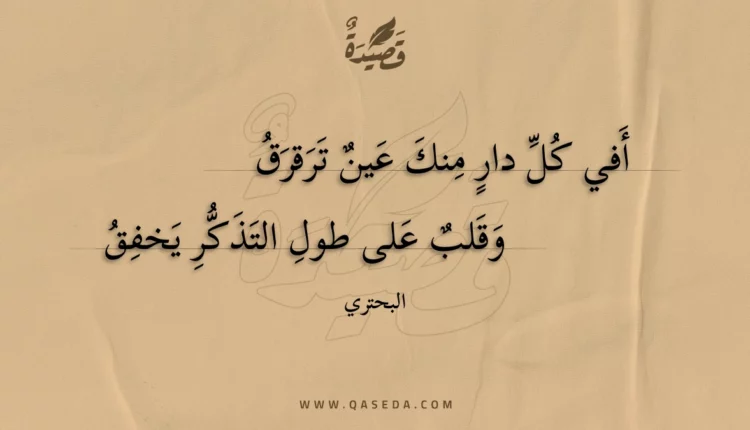 قَصِيْدَةٌ
أَفي كُلِّ دارٍ مِنكَ عَينٌ تَرَقرَقُ
وَقَلبٌ عَلى طولِ التَذَكُّرِ يَخفِقُ
البحتري
WWW.QASEDA.COM